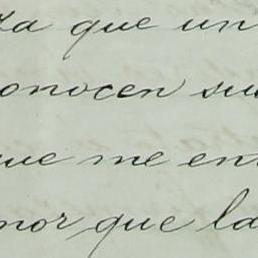 za que un
onocen su
ue me en
mor que la